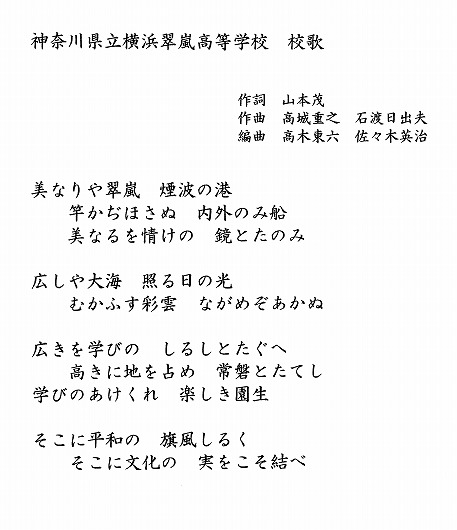 神奈川県立横浜翠嵐高等学校　校歌
作詞　山本茂
作曲　高城重之　石渡日出夫
編曲　高木東六　佐々木英治
美なりや翠嵐　煙波の港
竿かぢほさぬ　内外のみ船
美なるを情けの　鏡とたのみ
広しや大海　照る日の光
むかふす彩雲　ながめぞあかぬ
広きを学びの　しるしとたぐへ
高きに地を占め　常磐とたてし
学びのあけくれ　楽しき園生
そこに平和の　旗風しるく
そこに文化の　実をこそ結べ